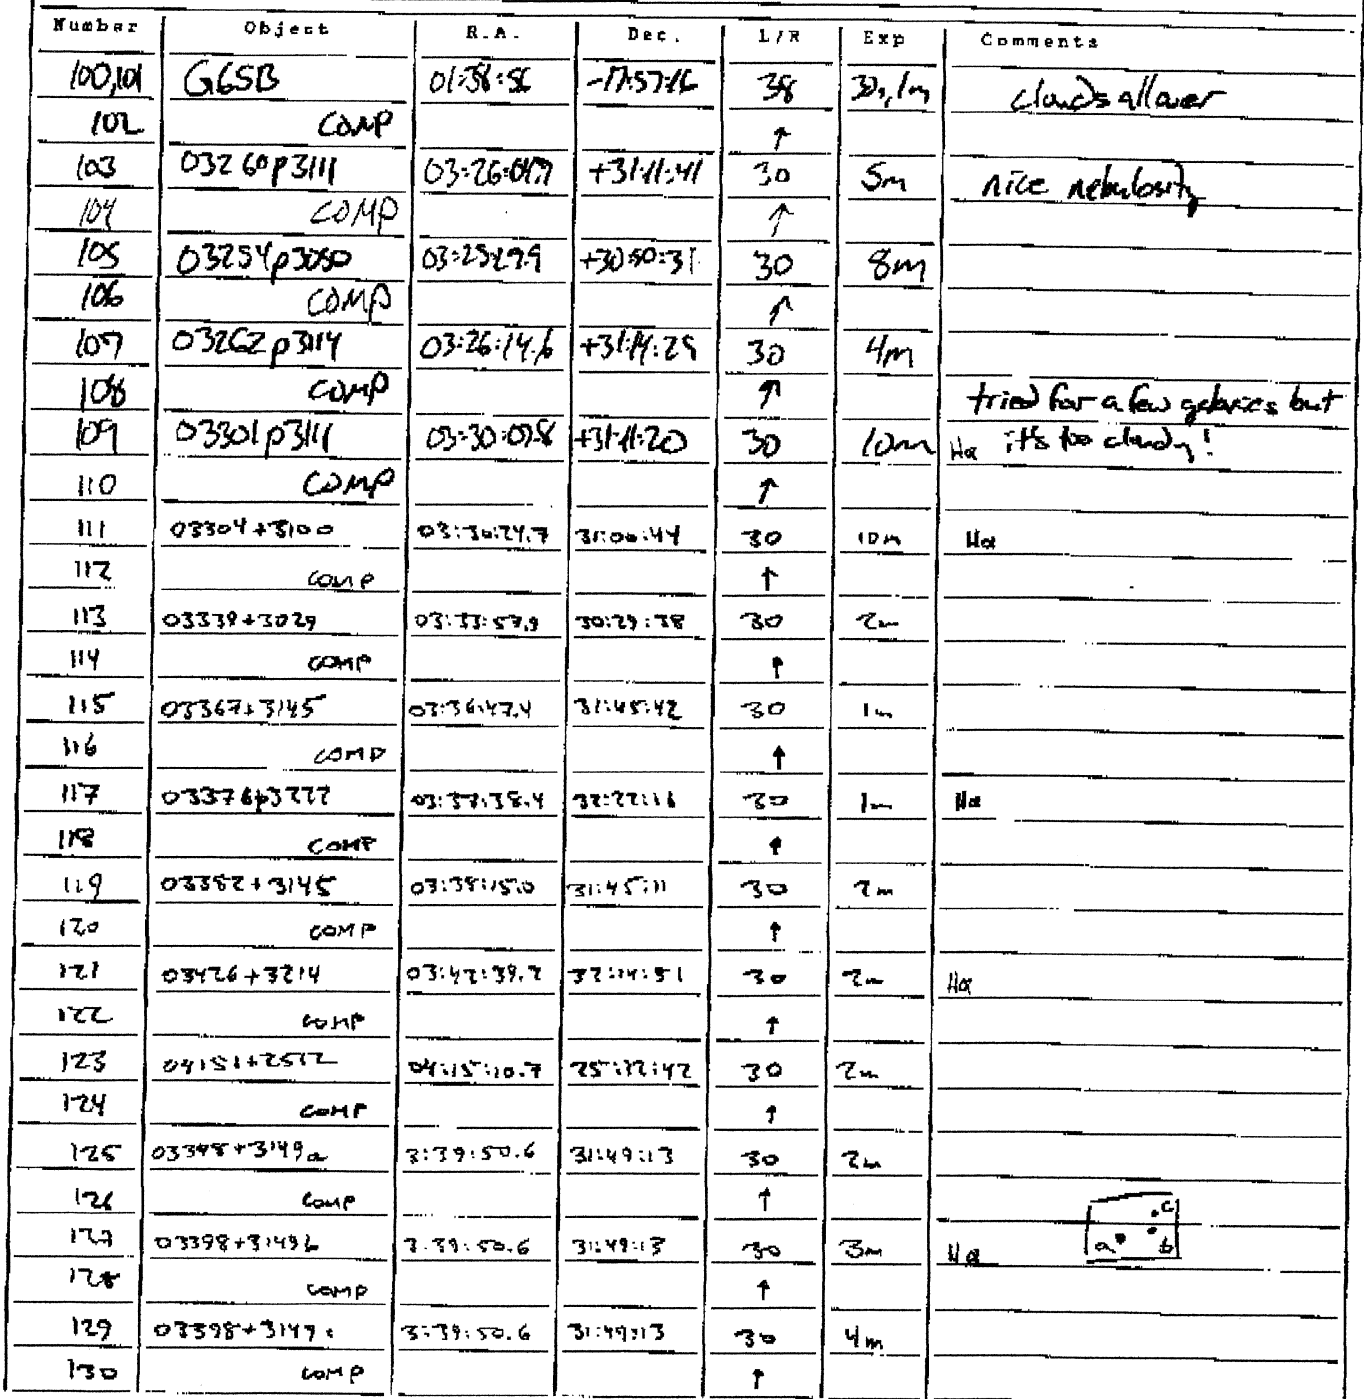 Number Object R.A. Dec. L/R Exp Comments
100,101 G65B 01:38:56 -17:57:16 38 30s,1m clouds all over
102 COMP ↑
103 03260p3111 03:26:04.7 +31:11:41 30 5m nice nebulosity
104 COMP ↑
105 03254p3050 03:25:29.9 +30:50:31 30 8m
106 COMP ↑
107 03262p3114 03:26:14.6 +31:14:25 30 4m
108 COMP ↑ tried for a few galaxies but
109 03301p3111 03:30:07.8 +31:11:20 30 10m Hα it's too cloudy!
110 COMP ↑
111 03304+3100 03:30:24.7 31:00:44 30 10m Hα
112 COMP ↑
113 03339+3029 03:33:57.9 30:29:38 30 2m
114 COMP ↑
115 03367+3145 03:36:47.4 31:45:42 30 1m
116 COMP ↑
117 03376p3222 03:37:38.4 32:22:16 30 1m Hα
118 COMP ↑
119 03382+3145 03:38:15.0 31:45:11 30 2m
120 COMP ↑
121 03426+3214 03:42:39.2 32:14:51 30 2m Hα
122 COMP ↑
123 04:15:10.7 30 2m
124 COMP ↑
125 03398+3149a 3:39:50.6 31:49:13 30 2m
126 COMP ↑ c
127 03398+3149b 3:39:50.6 31:49:13 30 3m Hα a b
128 COMP ↑
129 03398+3149c 3:39:50.6 31:49:13 30 4m
130 COMP ↑